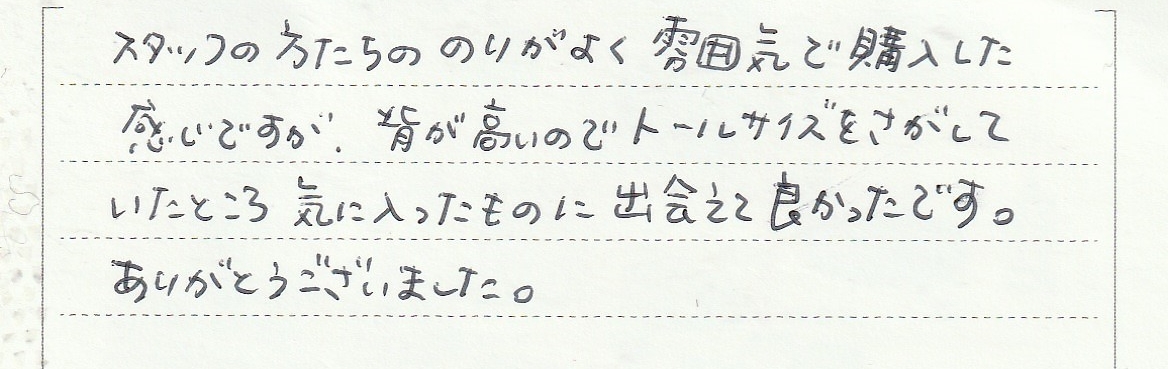 スタッフの方たちの のりがよく 雰囲気で購入した
感じですが、背が高いのでトールサイズをさがして
いたところ 気に入ったものに 出会えて 良かったです。
ありがとうございました。